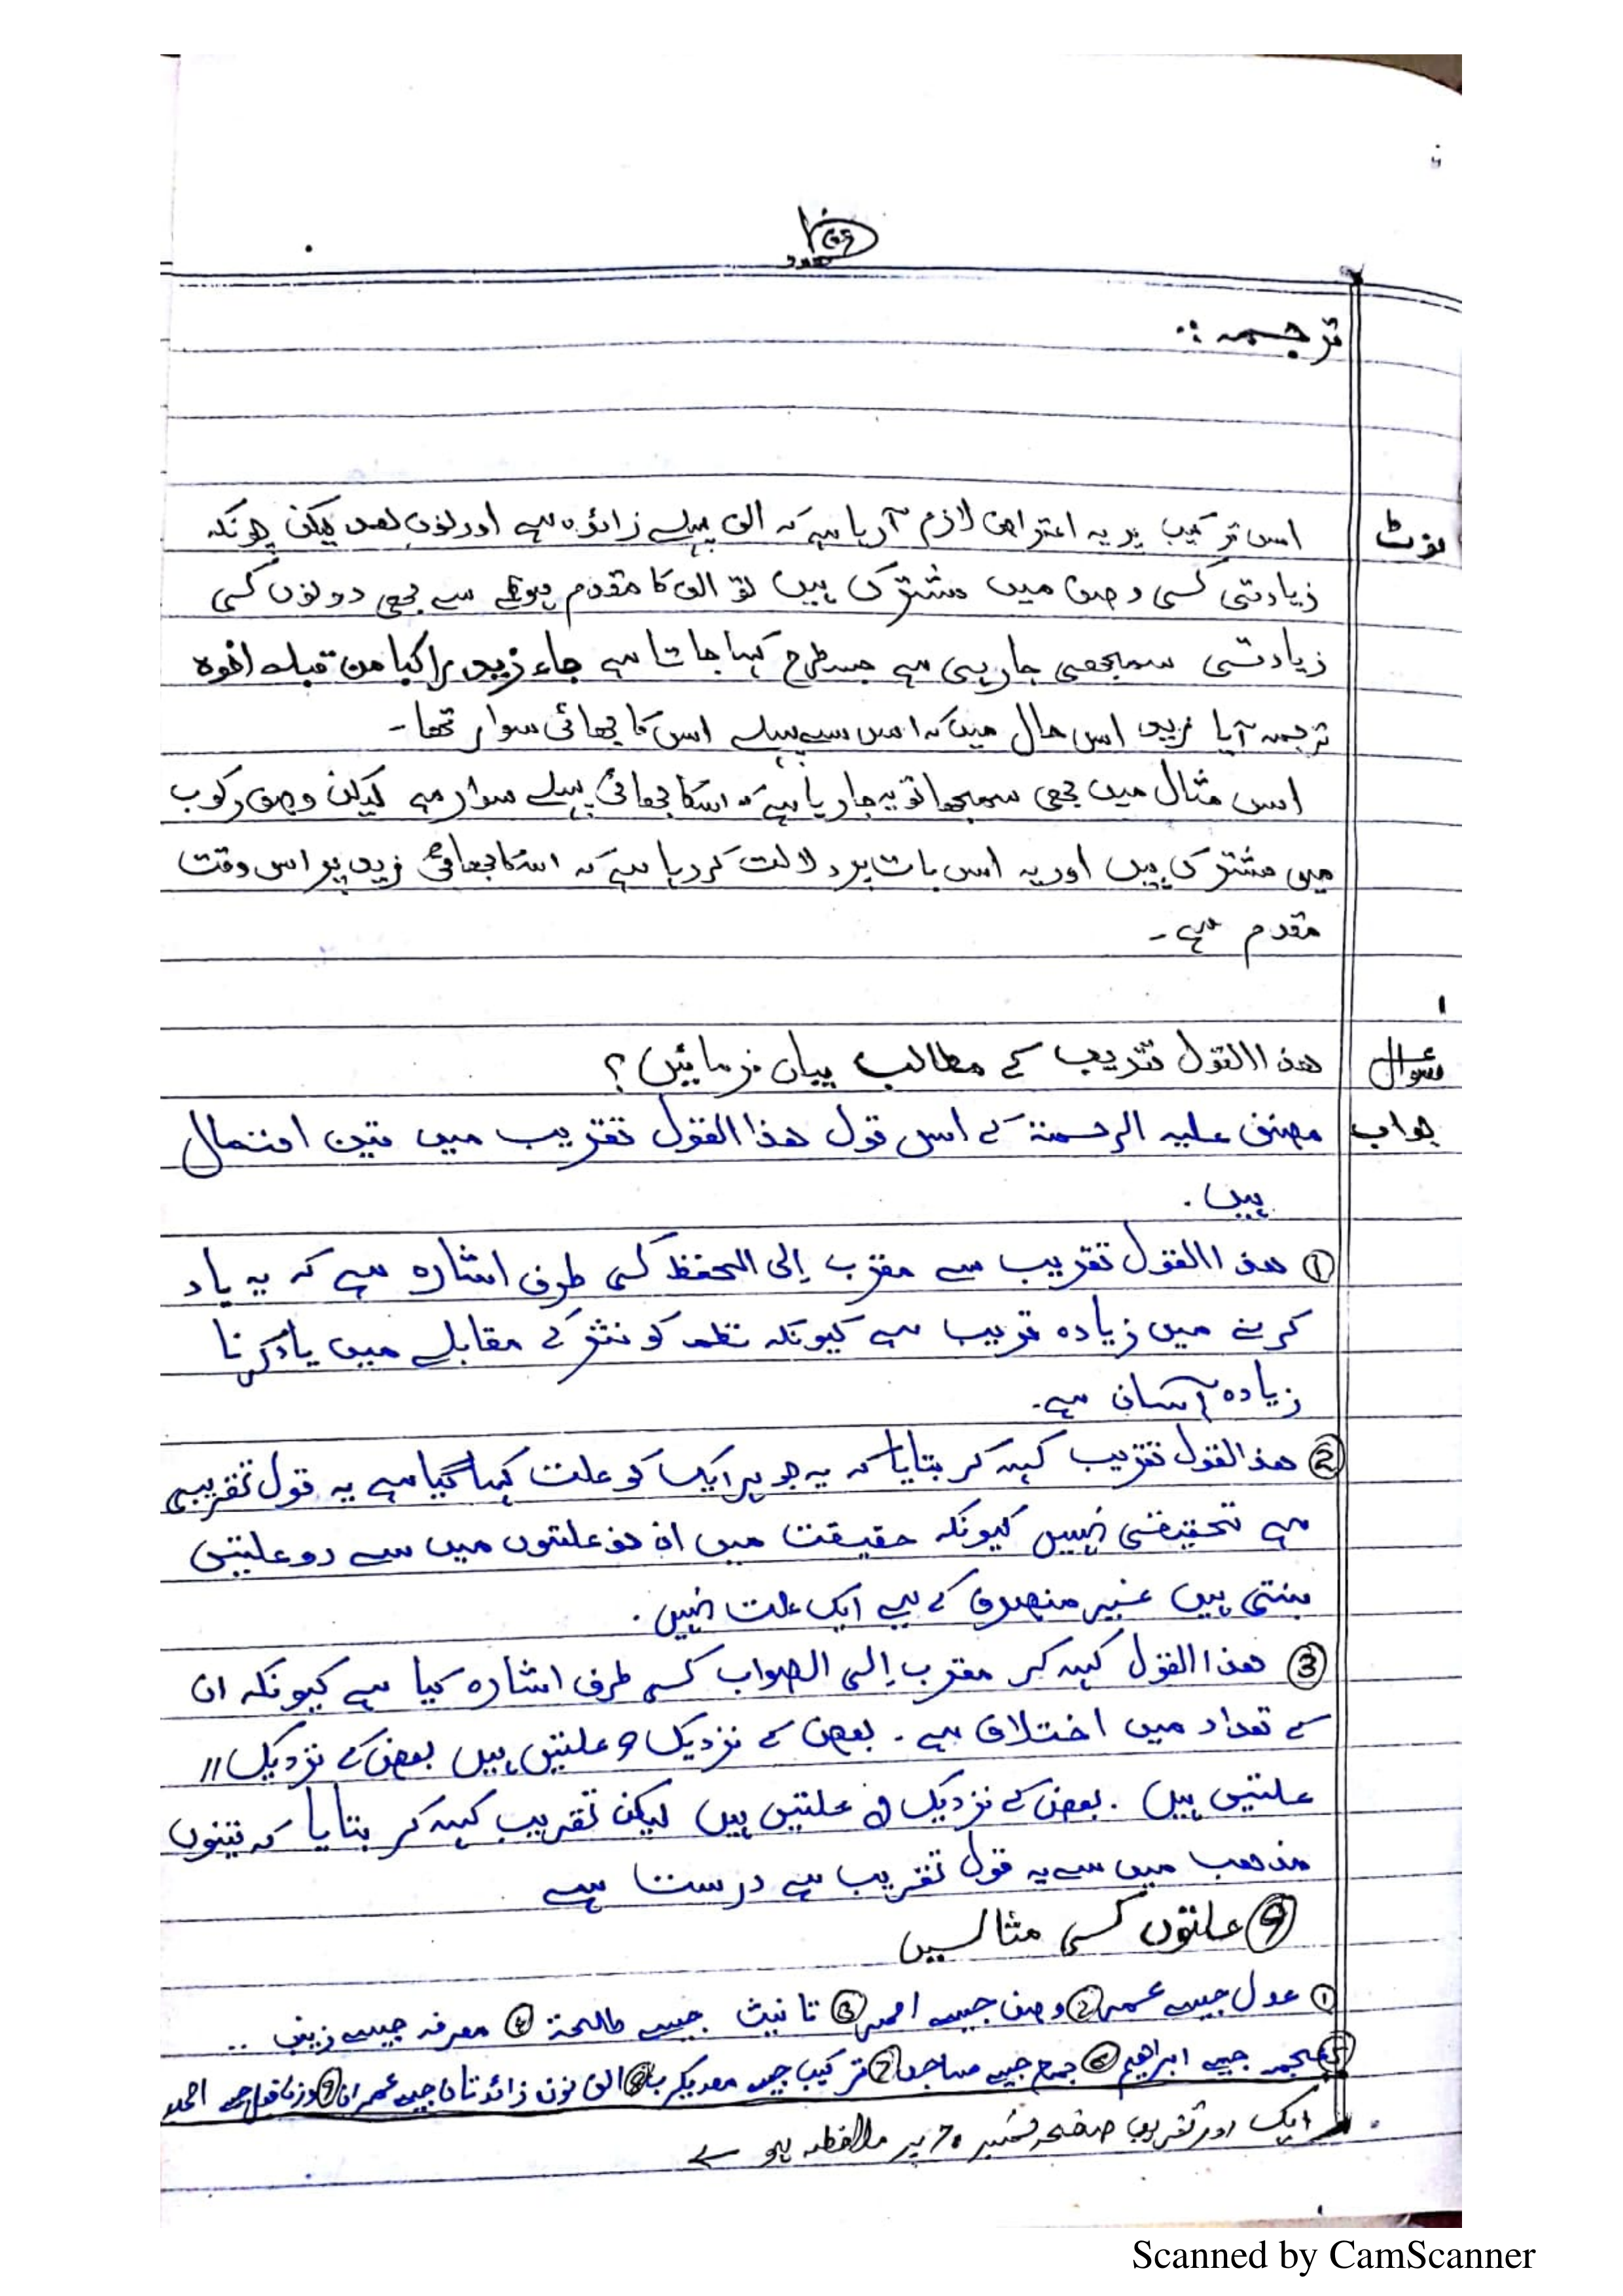 ترجمہ :.
نوٹ اس ترکیب پر یہ اعتراض لازم آ رہا ہے کہ الف پہلے زائدہ ہے اور نون بعد لیکن چونکہ
زیادتی کسی وصف میں مشترک ہیں تو الف کا مقدم ہونے سے بھی دونوں کی
زیادتی سمجھی جا رہی ہے جس طرح کہا جاتا ہے جاء زید راکبا من قبلہ اخوہ
ترجمہ آیا زید اس حال میں کہ اس سے پہلے اس کا بھائی سوار تھا۔
اس مثال میں بھی سمجھا تو یہ جا رہا ہے کہ اسکا بھائی پہلے سوار ہے لیکن وصف رکوب
میں مشترک ہیں اور یہ اس بات پر دلالت کر رہا ہے کہ اسکا بھائی زید پر اس وقت
مقدم ہے۔
سوال ھذا القول تقریب کے مطالب بیان فرمائیں؟
جواب مصنف علیہ الرحمۃ کے اس قول ھذا القول تقریب میں تین احتمال
ہیں.
① ھذا القول تقریب سے مقرب إلی الحفظ کی طرف اشارہ ہے کہ یہ یاد
کرنے میں زیادہ قریب ہے کیونکہ نظم کو نثر کے مقابلے میں یاد کرنا
زیادہ آسان ہے.
② ھذ القول تقریب کہہ کر بتایا کہ یہ جو ہر ایک کو علت کہا گیا ہے یہ قول تقریبی
ہے تحقیقی نہیں کیونکہ حقیقت میں ان نو علتوں میں سے دو علتیں
بنتی ہیں غیر منصرف کے لیے ایک علت نہیں.
③ ھذا القول کہہ کر مقرب إلی الصواب کی طرف اشارہ کیا ہے کیونکہ ان
کے تعداد میں اختلاف ہے. بعض کے نزدیک 9 علتیں ہیں بعض کے نزدیک 11
علتیں ہیں. بعض کے نزدیک علتیں ہیں لیکن تقریب کہہ کر بتایا کہ تینوں
مذھب میں سے یہ قول تقریب ہے درست ہے
⑨ علتوں کی مثالیں
① عدل جیسے عمر ② وصف جیسے احمر ③ تانیث جیسے طلحۃ ④ معرفہ جیسے زینب ..
⑤ عجمہ جیسے ابراھیم ⑥ جمع جیسے مساجد ⑦ ترکیب جیسے معدیکرب ⑧ الف نون زائدتان جیسے عمران ⑨ وزن فعل جیسے احمد
ایک اور تقریب صفحہ نمبر 70 پر ملاحظہ ہو
Scanned by CamScanner